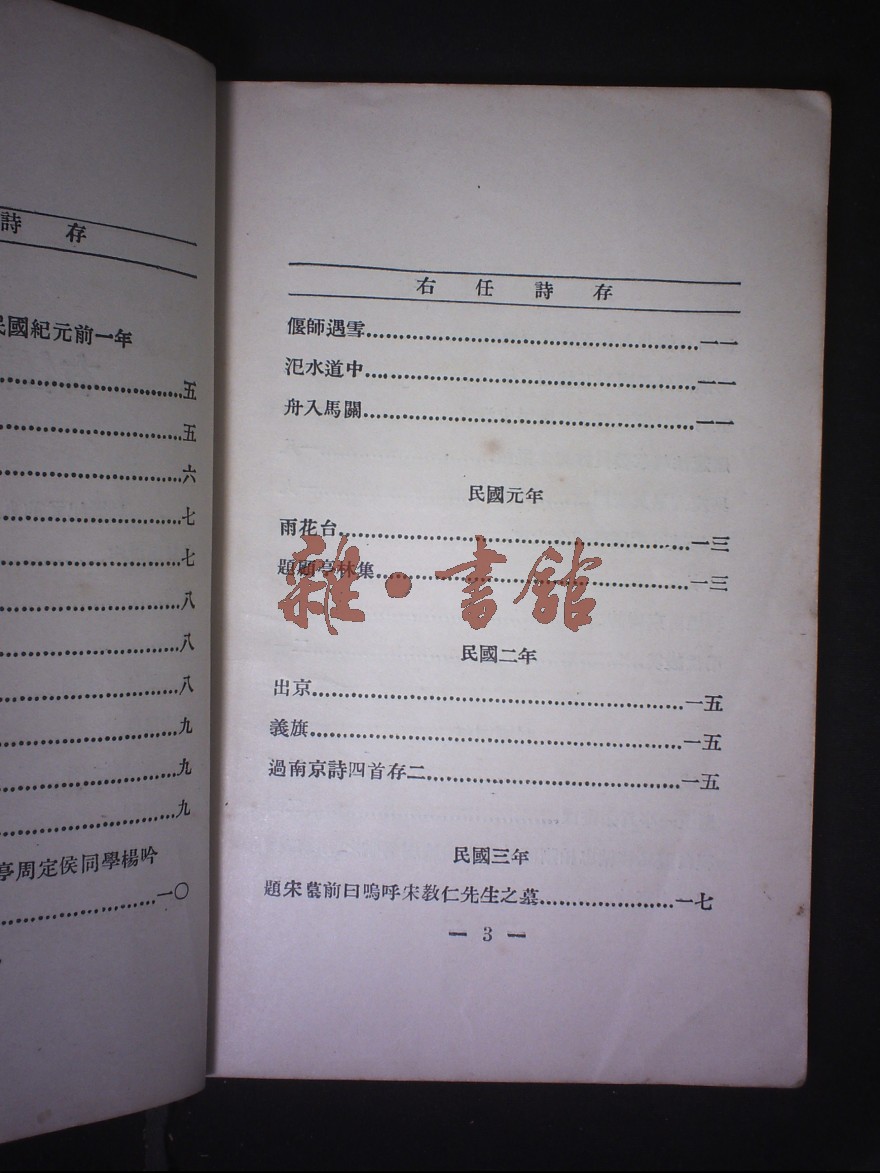 詩存
民國紀元前一年
……五
……五
……六
……七
……七
……八
……八
……八
……九
……九
……九
亭周定侯同學楊吟
……一〇
右任詩存
偃師遇雪……一一
汜水道中……一一
舟入馬關……一一
民國元年
雨花台……一三
題顧亭林集……一三
民國二年
出京……一五
義旗……一五
過南京詩四首存二……一五
民國三年
題宋墓前曰嗚呼宋教仁先生之墓……一七
— 3 —
雜·書館